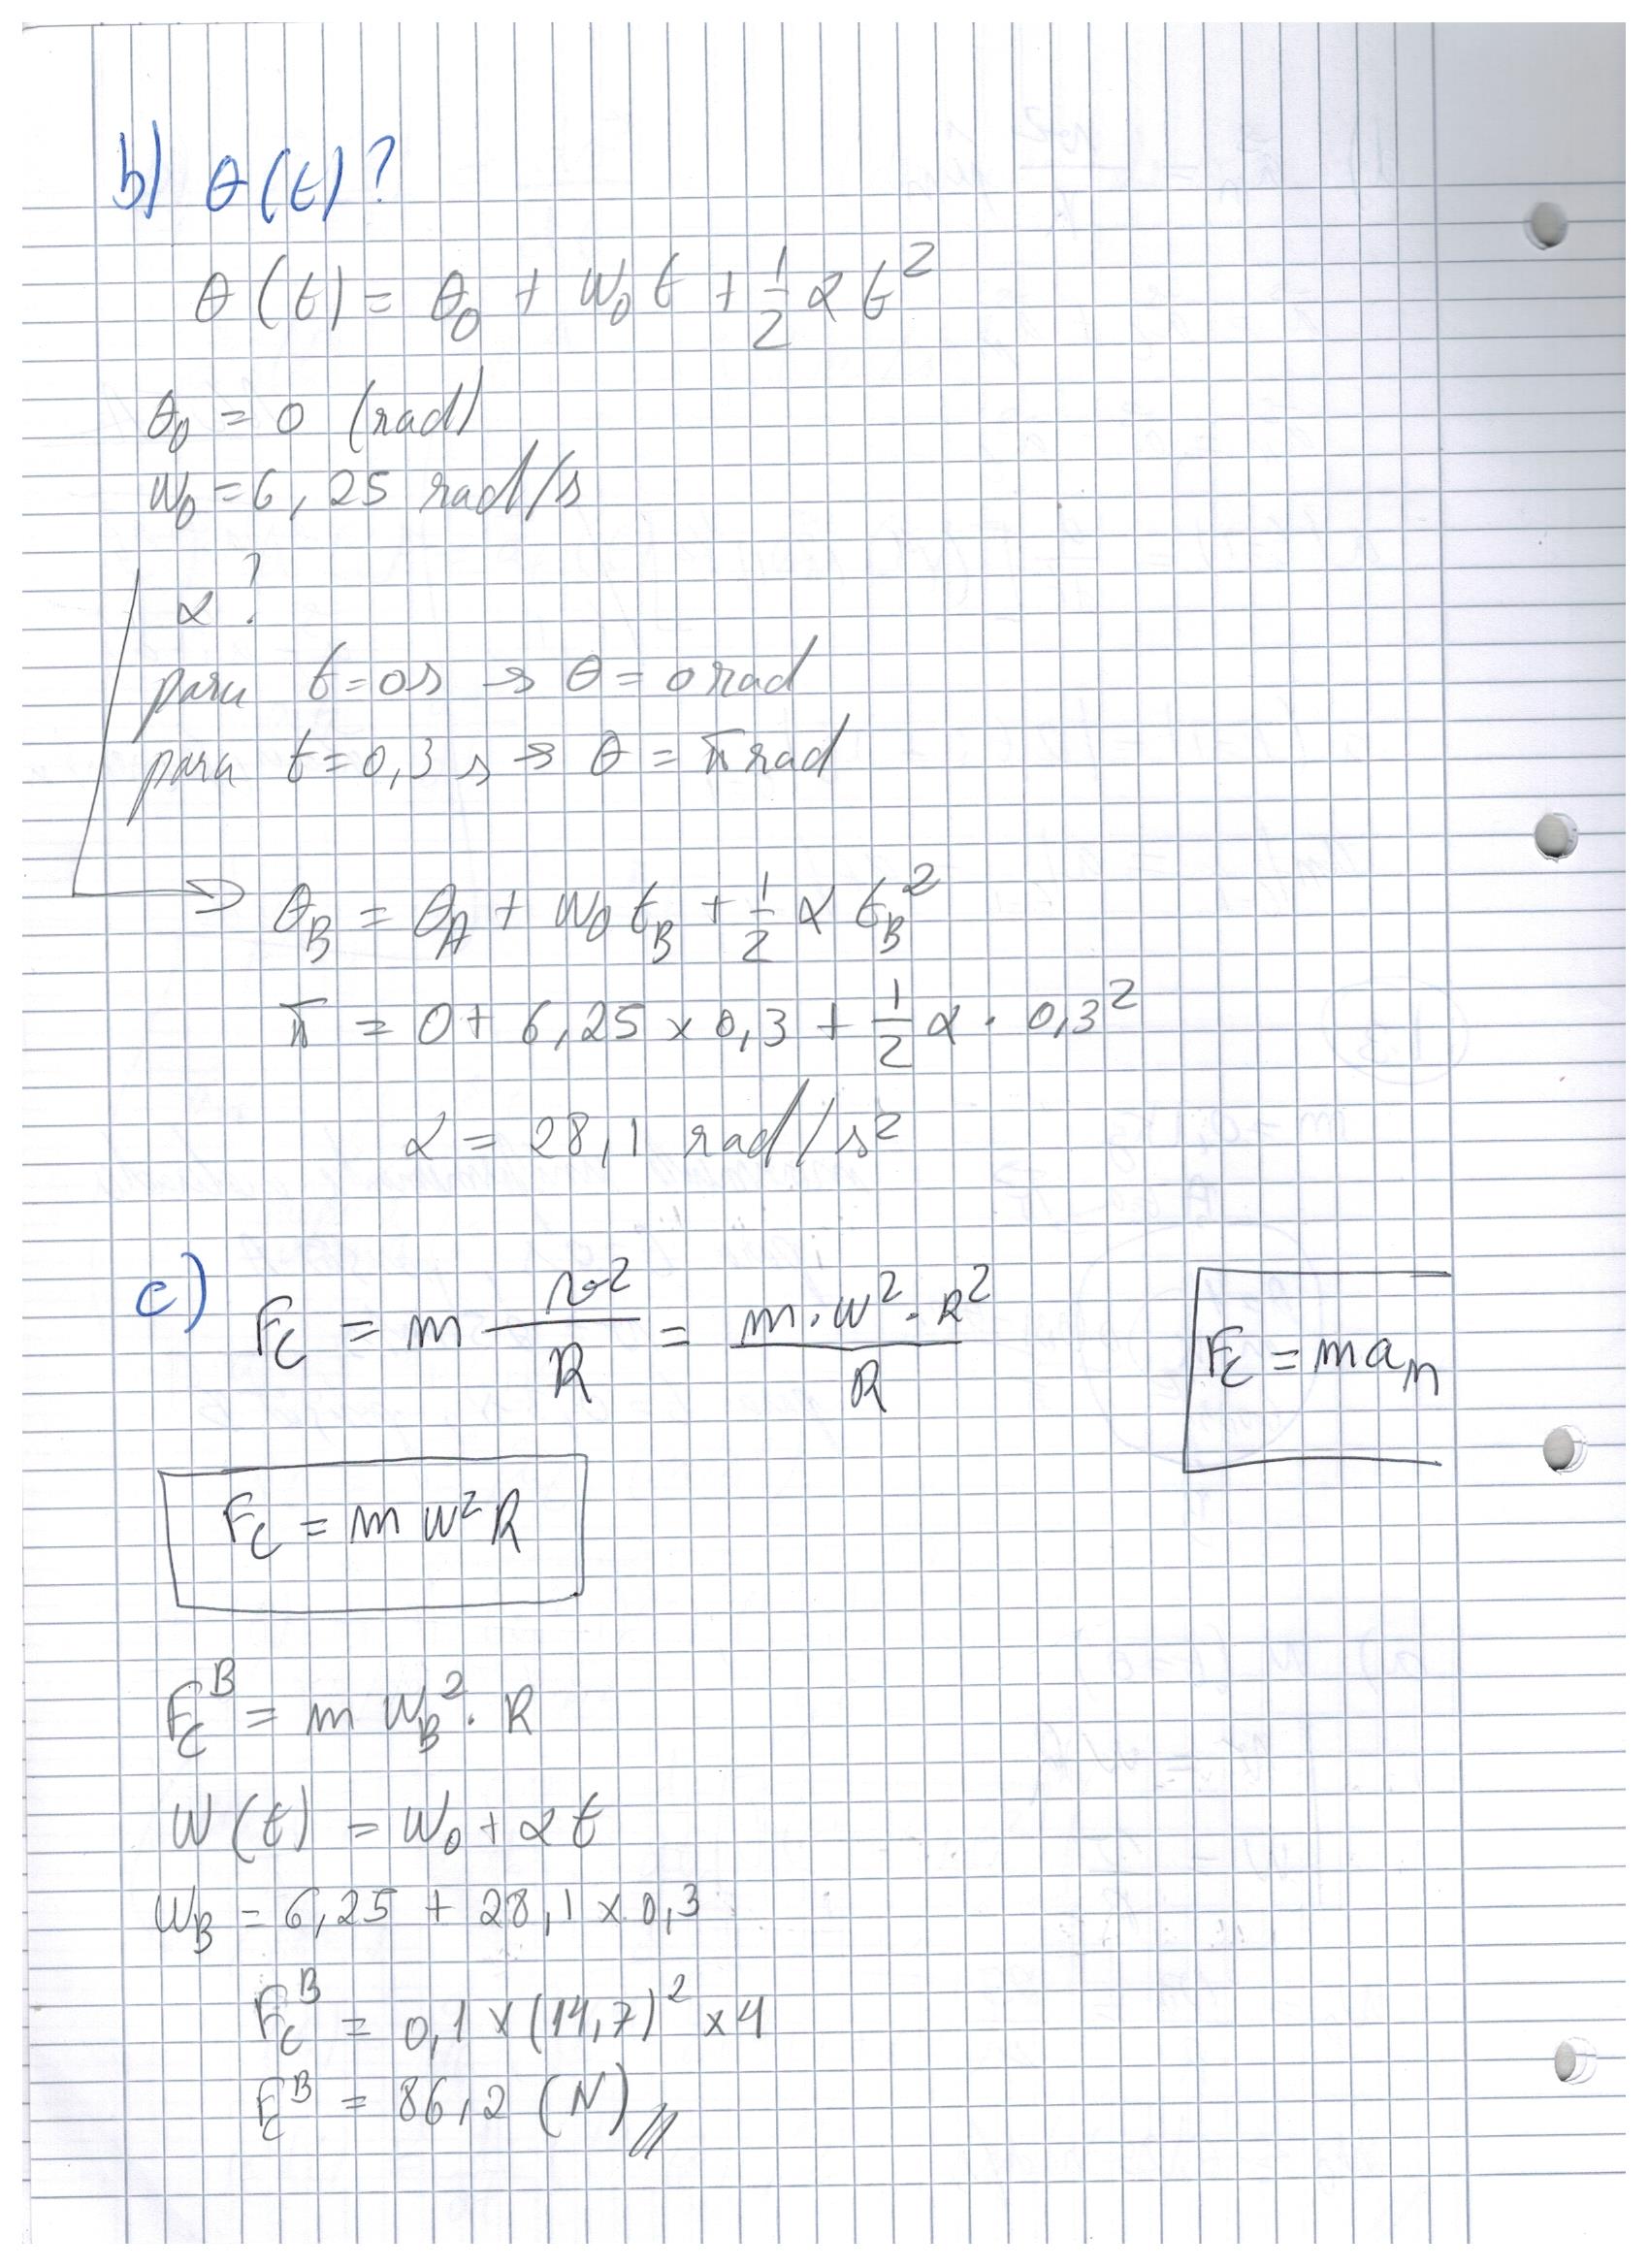 b) θ(t)?
θ(t) = θ₀ + w₀t + 1/2 α t²
θ₀ = 0 (rad)
w₀ = 6,25 rad/s
α?
para t=0s → θ = 0 rad
para t=0,3 s → θ = π rad
→ θ_B = θ_A + w₀ t_B + 1/2 α t_B²
π = 0 + 6,25 × 0,3 + 1/2 α · 0,3²
α = 28,1 rad/s²
c) F_C = m v²/R = m·w²·R²/R
F_C = m a_n
F_C = m w² R
F_C^B = m w_B² · R
w(t) = w₀ + αt
w_B = 6,25 + 28,1 × 0,3
F_C^B = 0,1 × (14,7)² × 4
F_C^B = 86,2 (N)//